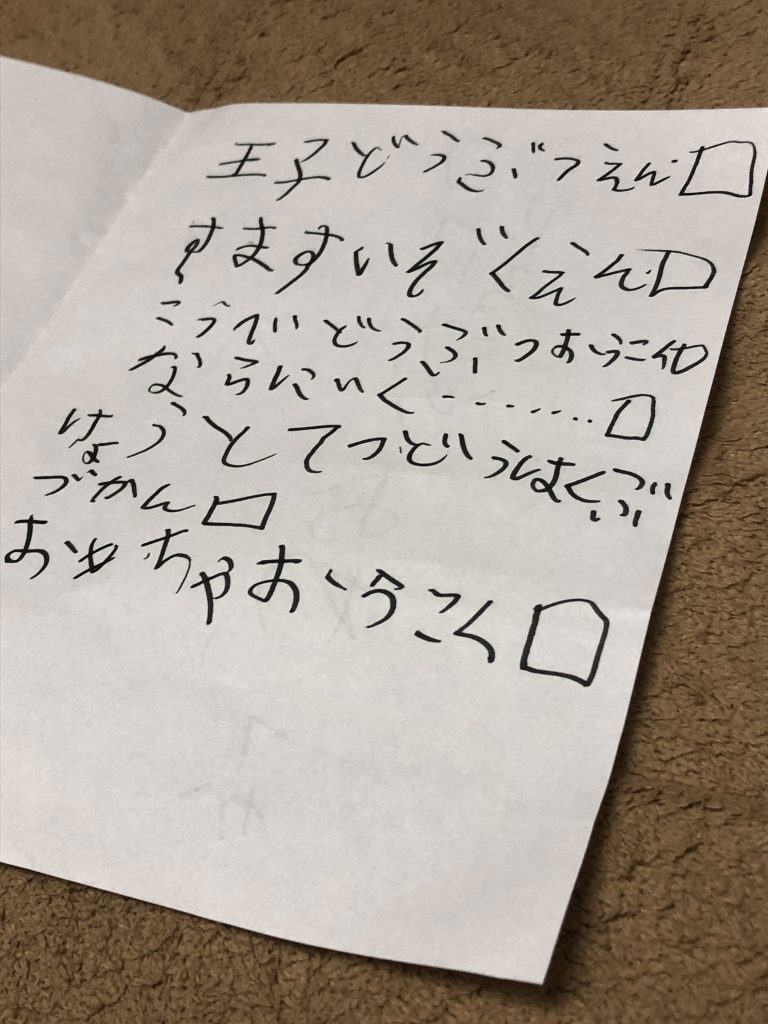 王子どうぶつえん□
すますいぞくえん□
こうていどうぶつおうこく
ならにいく………□
きょうとてつどうはくぶ
づかん□
おもちゃおうこく□